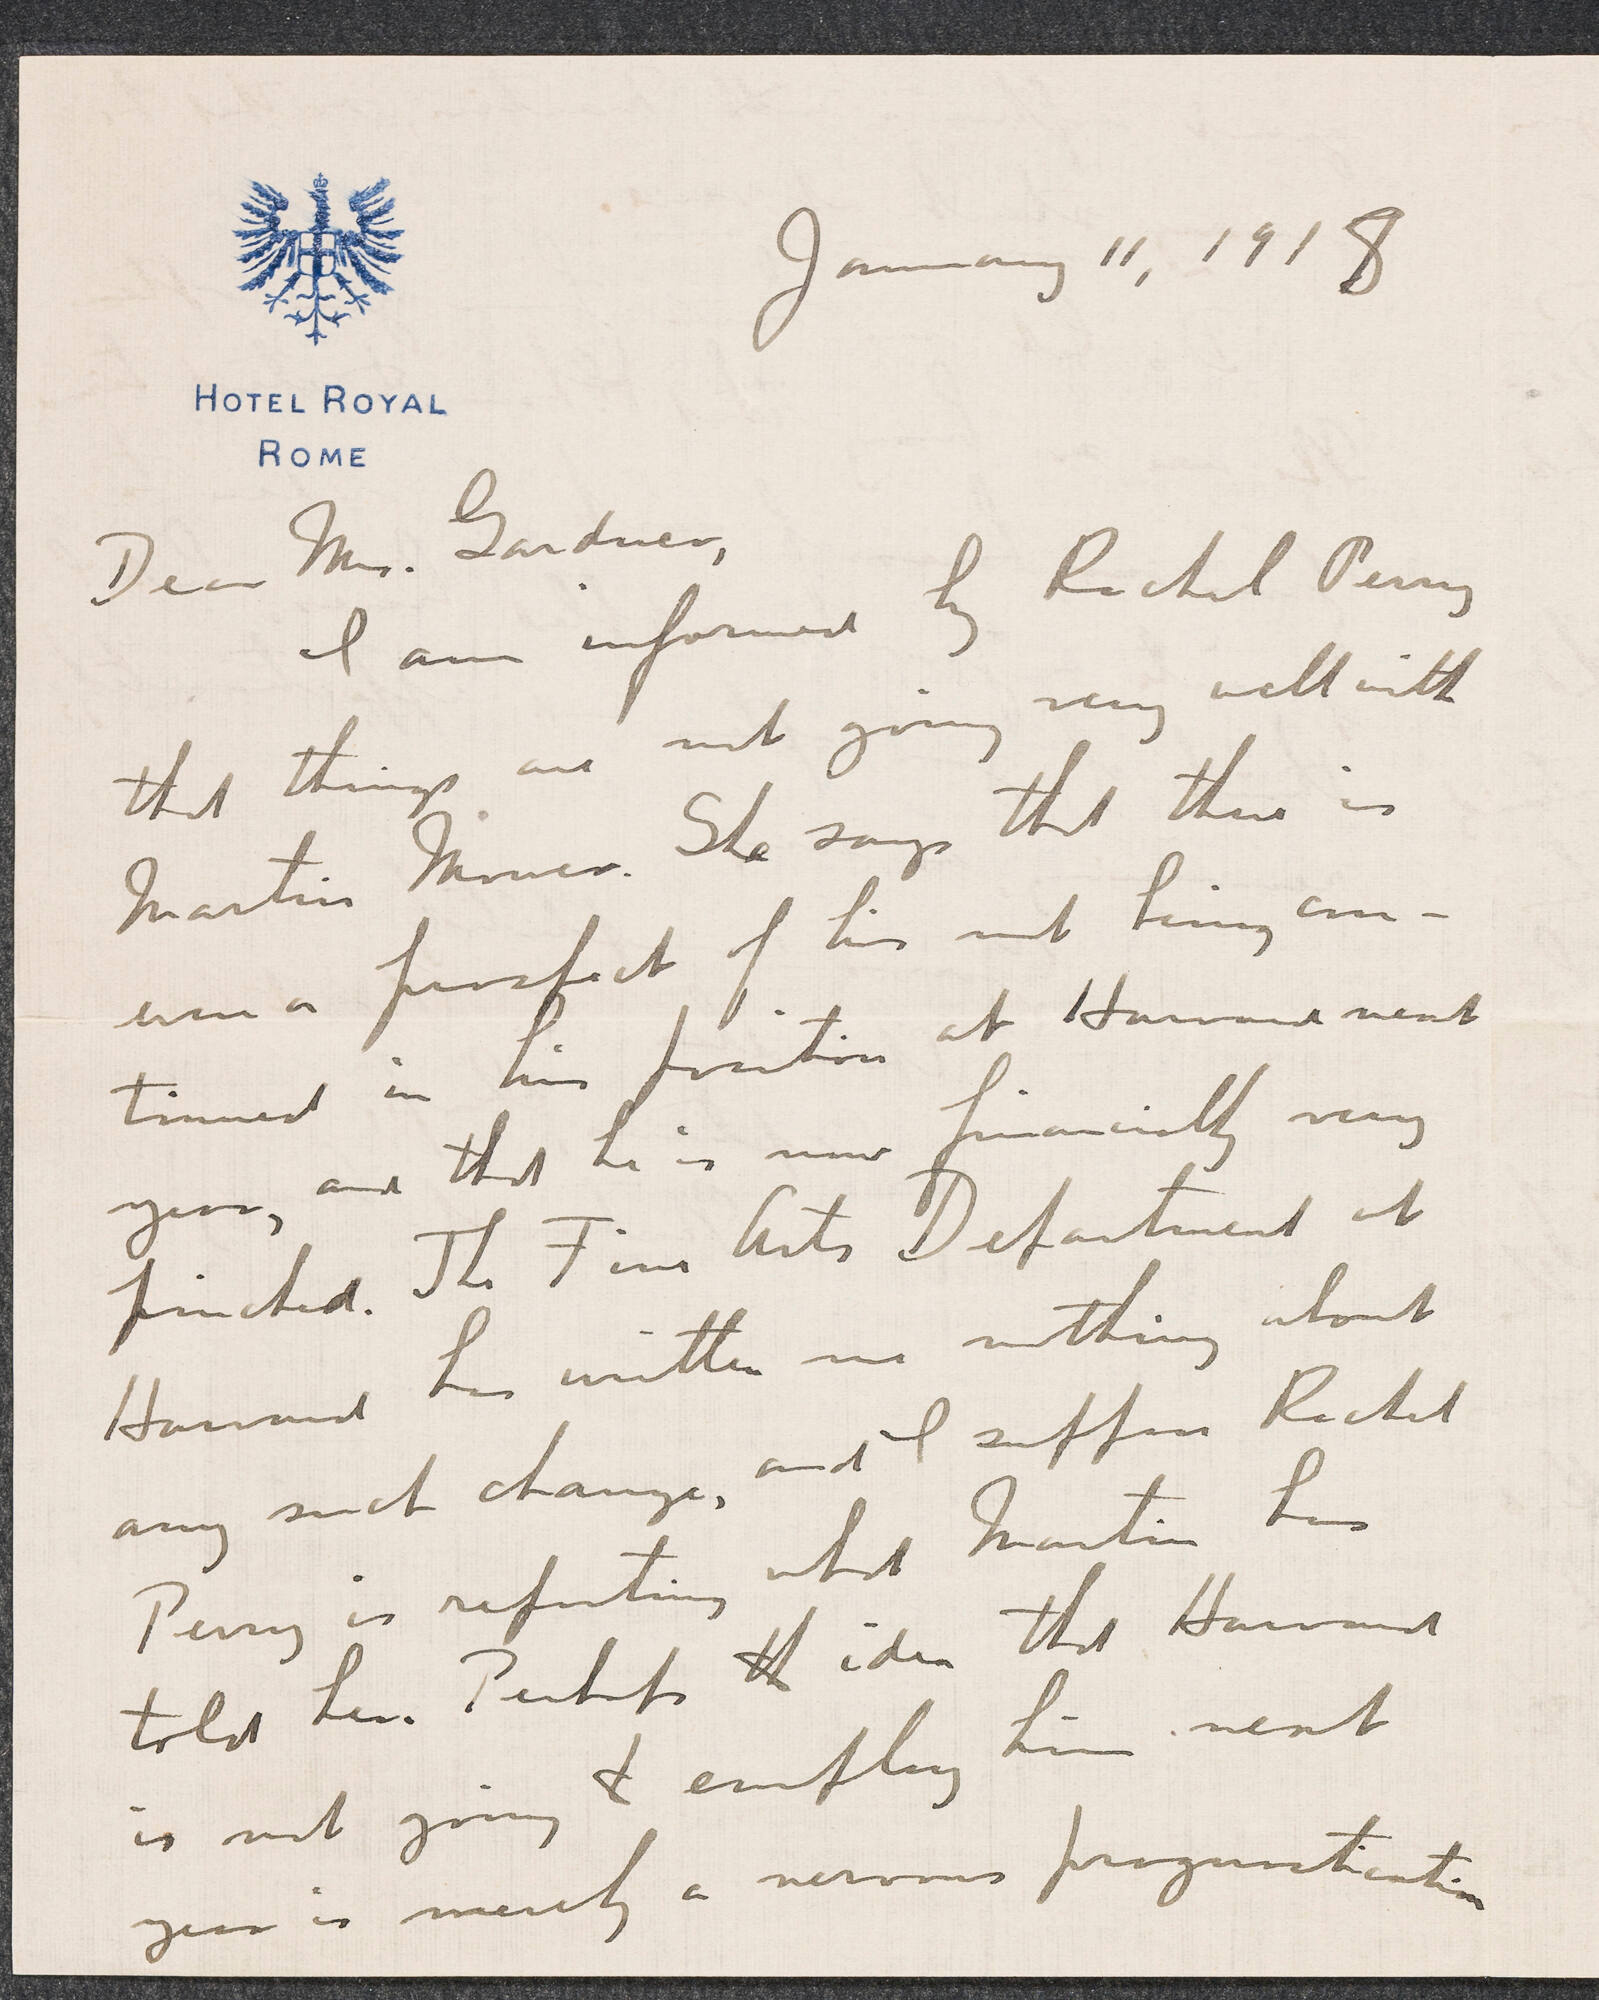 January 11, 1918
HOTEL ROYAL
ROME
Dear Mrs. Gardner,
I am informed by Rachel Perry
that things are not going very well with
Martin Mower. She says that there is
even a prospect of his not being con-
tinued in his position at Harvard next
year, and that he is now financially very
pinched. The Fine Arts Department at
Harvard has written me nothing about
any such change, and I suppose Rachel
Perry is reporting what Martin has
told her. Perhaps the idea that Harvard
is not going to employ him next
year is merely a nervous prognostication